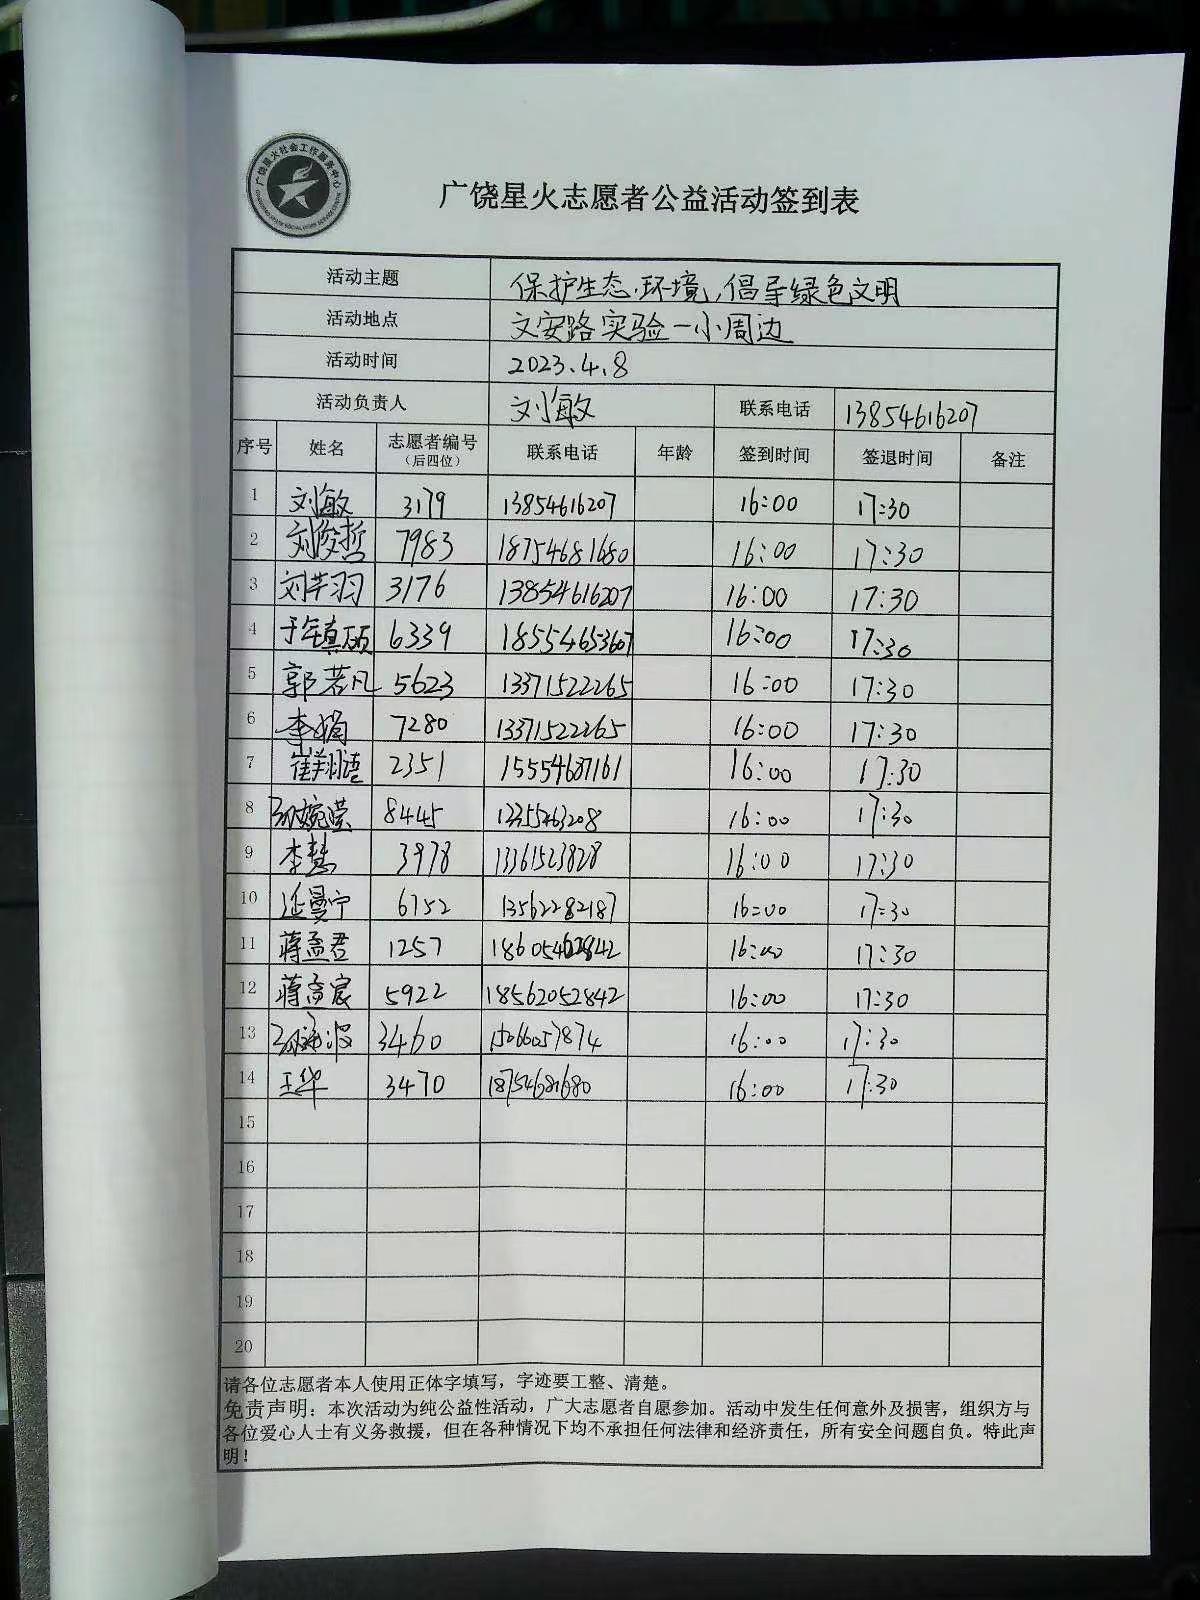 广饶星火社会工作服务中心
广饶星火志愿者公益活动签到表
活动主题 保护生态环境,倡导绿色文明
活动地点 文安路实验一小周边
活动时间 2023.4.8
活动负责人 刘敏 联系电话 13854616207
序号 姓名 志愿者编号（后四位） 联系电话 年龄 签到时间 签退时间 备注
1 刘敏 3179 13854616207 16:00 17:30
2 刘俊哲 7983 18754681680 16:00 17:30
3 刘芊羽 3176 13854616207 16:00 17:30
4 6339 18554653607 16:00 17:30
5 郭若凡 5623 13371522265 16:00 17:30
6 李娟 7280 13371522265 16:00 17:30
7 崔翔语 2351 15554687161 16:00 17:30
8 孙婉莹 8445 16:00 17:30
9 李慧 3978 13361523828 16:00 17:30
10 延曼宁 6752 13562282187 16:00 17:30
11 蒋孟君 1257 16:00 17:30
12 蒋孟宸 5922 18562052842 16:00 17:30
13 3460 15066057874 16:00 17:30
14 王华 3470 18754681680 16:00 17:30
15
16
17
18
19
20
请各位志愿者本人使用正体字填写，字迹要工整、清楚。
免责声明：本次活动为纯公益性活动，广大志愿者自愿参加。活动中发生任何意外及损害，组织方与
各位爱心人士有义务救援，但在各种情况下均不承担任何法律和经济责任，所有安全问题自负。特此声
明！